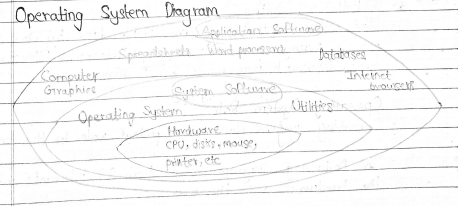 Operating System Diagram
Application Software
Spreadsheets Word processors Databases
Computer Graphics
Internet browsers
System Software
Operating System Utilities
Hardware
CPU, disks, mouse,
printer, etc